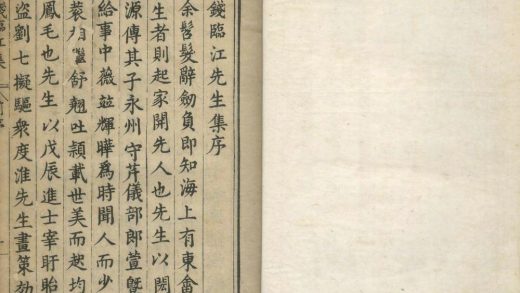 錢臨江先生集序
余髫髮辭劒負即知海上有東畬
生者則起家開先人也先生以閎
源傳其子永州守芹儀部郎萱暨
給事中薇竝輝曄爲時聞人而少
繼舒翹吐頴載世美而起均
鳳毛也先生以戊辰進士宰盱眙
盜劉七擬驅衆度淮先生畫策効
臨江集